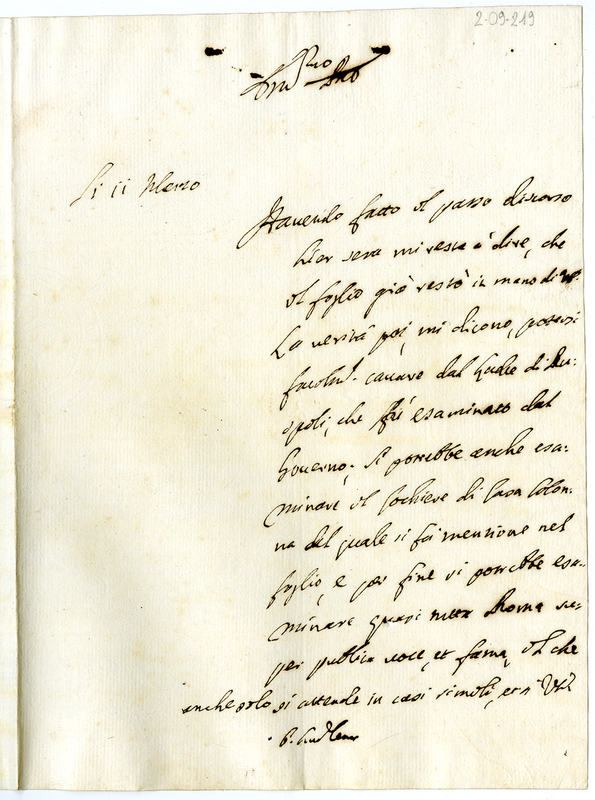 2-09-219
Li ii Marzo
Havendo fatto il passo discorso
hier sera mi resta à dire, che
il foglio già restò in mano di
La verità poi, mi dicono, potersi
facilmᵉ. cavare dal Ladro di Ru:
spoli, che fù esaminato dal
Governo; si potrebbe anche esa:
minare il Cochiere di Casa Colon:
na del quale si fà mentione nel
foglio, e per fine si potrebbe esa:
minare quasi tutta Roma su:
per publica voce, et fama, il che
anche solo si attende in casi simili, et